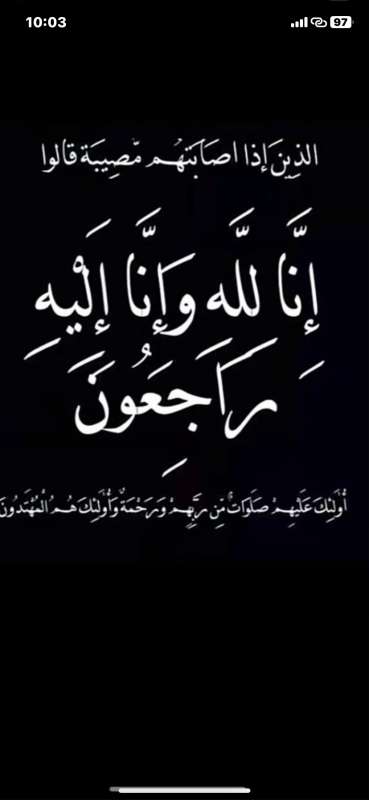 10:03
97
الذِينَ إذا اصَابَتهُم مّصِيبَة قالوا
إِنَّا لِلَّهِ وَإِنَّا إِلَيْهِ
رَاجِعُونَ
أُولَئِكَ عَلَيْهِمْ صَلَوَاتٌ مِّن رَّبِّهِمْ وَرَحْمَةٌ وَأُولَئِكَ هُمُ الْمُهْتَدُونَ